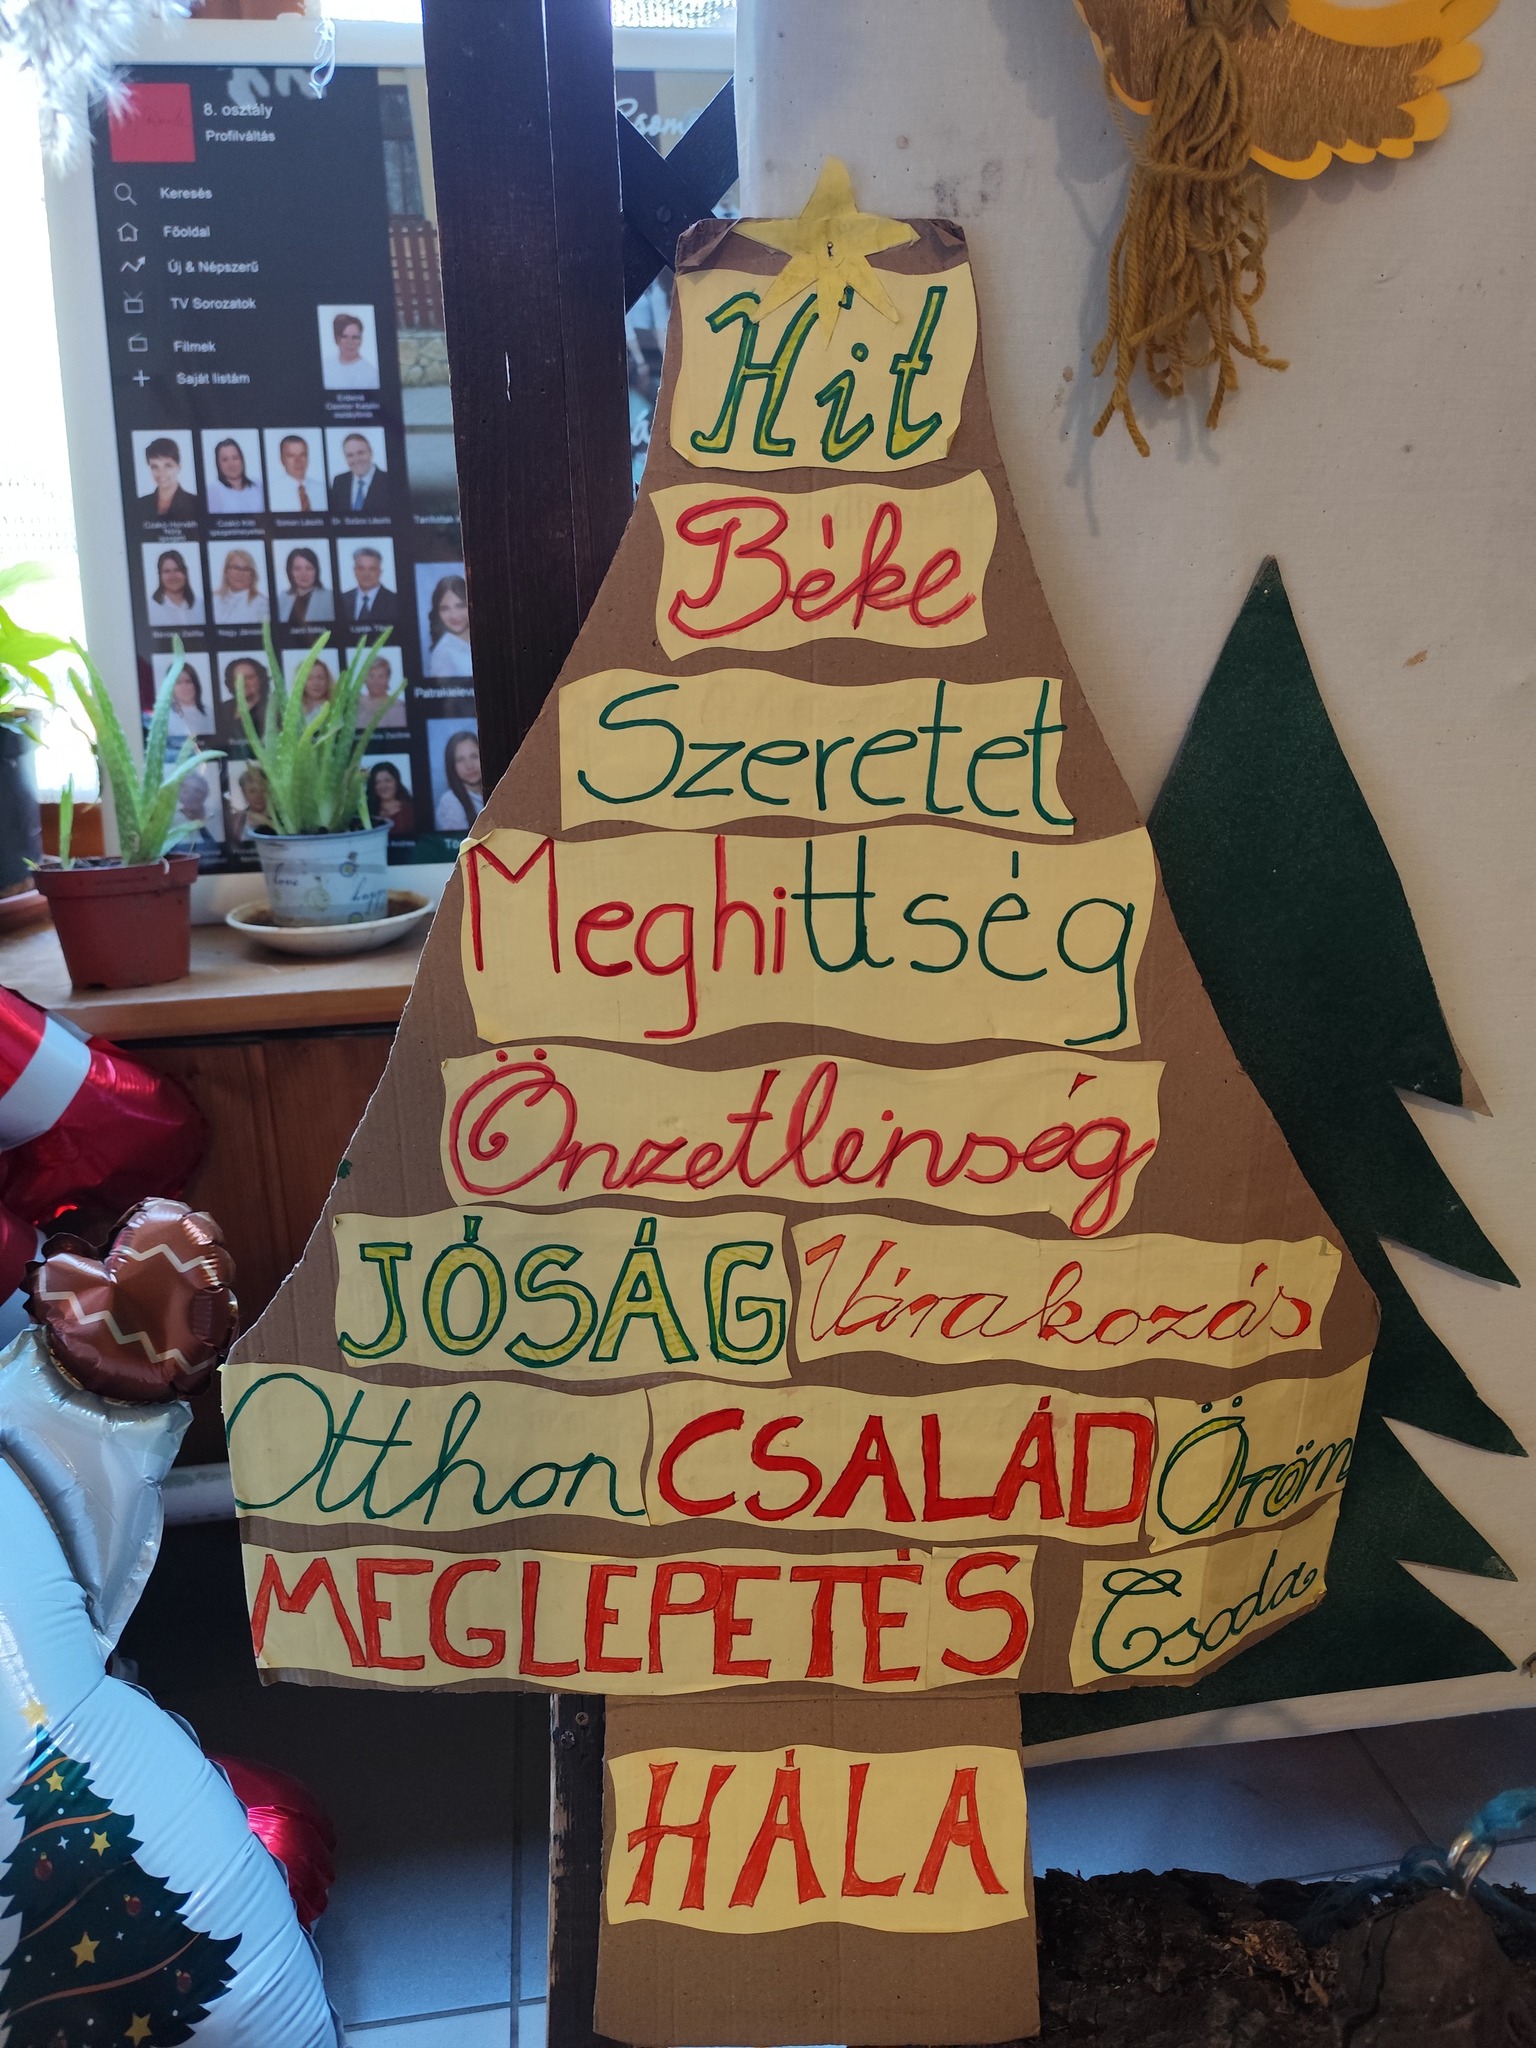 8. osztály
Profilváltás
Keresés
Főoldal
Új & Népszerű
TV Sorozatok
Filmek
Saját listám
Hit
Béke
Szeretet
Meghittség
Önzetlenség
JÓSÁG Várakozás
Otthon CSALÁD Öröm
MEGLEPETÉS Csoda
HÁLA